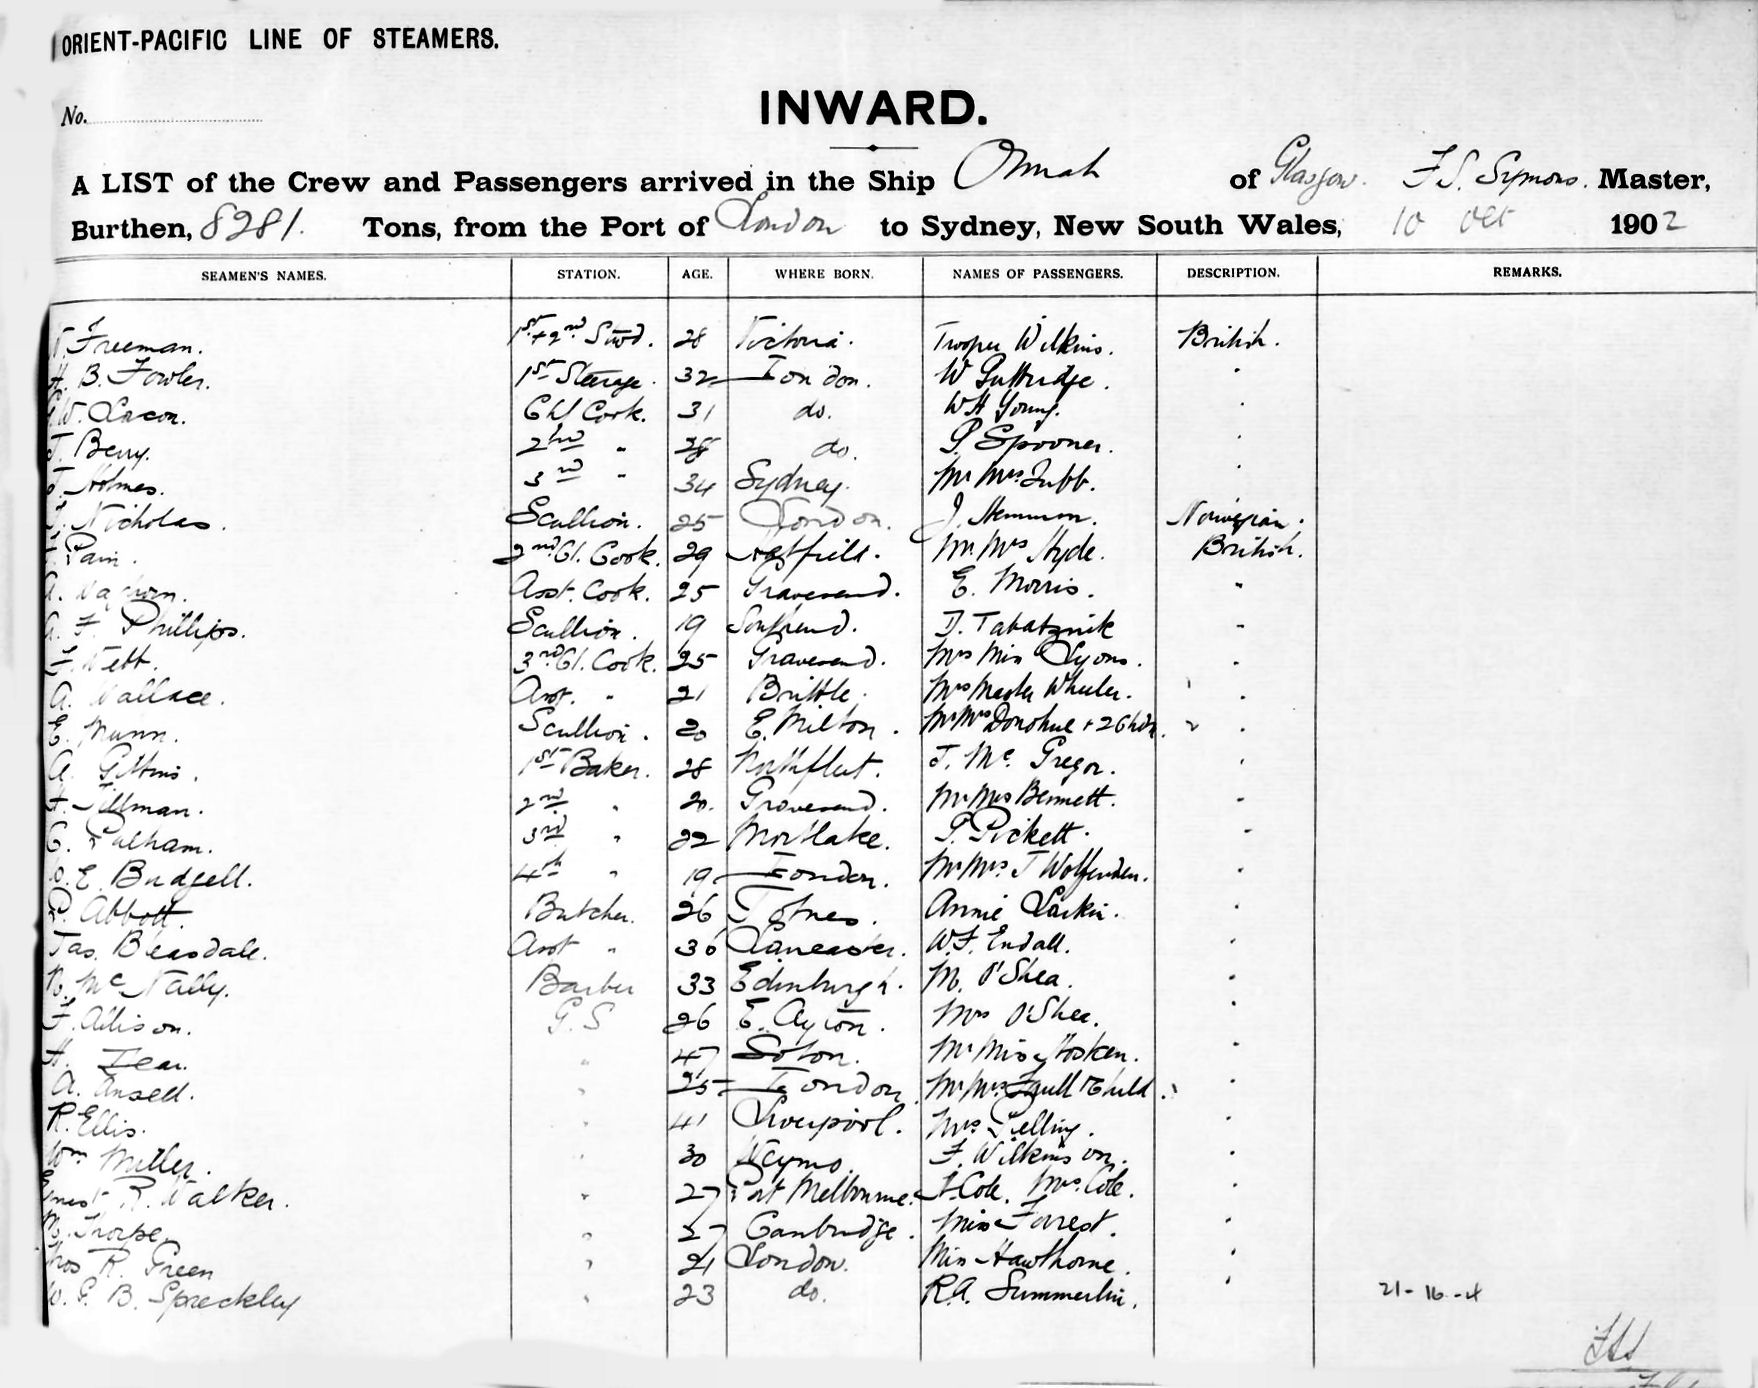 ORIENT-PACIFIC LINE OF STEAMERS.
No.
INWARD.
A LIST of the Crew and Passengers arrived in the Ship Omrah of Glasgow. F S. Symons. Master,
Burthen, 8281. Tons, from the Port of London to Sydney, New South Wales, 10 Oct 1902
SEAMEN'S NAMES. STATION. AGE. WHERE BORN. NAMES OF PASSENGERS. DESCRIPTION. REMARKS.
Freeman. 1st + 2nd Stwd. 28 Victoria. Trooper Wilkins. British.
H. B. Fowler. 1st Steerage. 32 London. W Guttridge. "
W. Lacon. Chf Cook. 31 do. WH Young. "
T. Berry. 2nd " 28 do. P. Spooner. "
T. Holmes. 3rd " 34 Sydney. Mr Mrs Tubb. "
Nicholas. Scullion. 25 London. J. Norwegian.
Pain. 2nd Cl. Cook. 29 Hatfield. Mr. Mrs Hyde. British.
A. Asst. Cook. 25 Gravesend. E. Morris. "
A. F. Phillips. Scullion. 19 D. Tabatznik "
Webb. 3rd Cl. Cook. 25 Gravesend. Mrs Miss Lyons. "
A. Wallace. Asst. " 21 Mrs Master Wheeler. "
E. Munn. Scullion. 20 E. Milton. Mr Mrs Donohue + 2 Chdn. "
A. Gittins. 1st Baker. 28 Northfleet. J. Mc Gregor. "
Tillman. 2nd " 20. Gravesend. Mr Mrs Bennett. "
C. Pulham. 3rd " 22 Mortlake. P. Pickett. "
E. Budgell. 4th " 19 London. Mr Mrs. J Wolfenden. "
P. Abbott. Butcher. 26 Totnes. Annie Larkin. "
Jas. Bleasdale. Asst " 30 Lancaster. W.F. Endall. "
R. Mc Nally. Barber 33 Edinburgh. M. O'Shea. "
F. Allison. G. S 26 E. Ayton. Mrs O'Shea. "
H. " 47 Soton. Mr Miss Hosken. "
A. Ansell. " 25 London. Mr Mrs. + Child. "
R. Ellis. " 41 Liverpool. Mrs Pelling. "
Wm Miller. " 30 Weymo. F. Wilkinson. "
Ernest R. Walker. " 27 Port Melbourne. J. Cole. Mrs. Cole. "
Thorpe. " 27 Cambridge. Miss Forrest. "
Thos R. Green " 21 London. Miss Hawthorne. "
W. G. B. Spreckley " 23 do. R.A. Summerlin. " 21 - 16 - 4